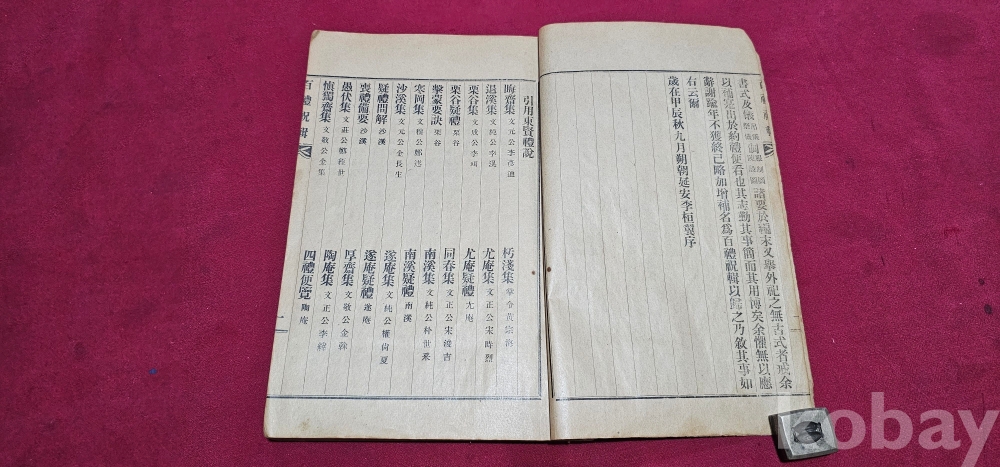 諸要於編末又擧外祀之無古式者戒余
以補寃出於約禮便看也其志勤其事簡而其用博矣余懼無以應
辭謝踰年不獲終已略加增補名爲百禮祝輯以歸之乃敘其事如
右云爾
歲在甲辰秋九月朔朝延安李桓翼序
百禮祝輯
引用東賢禮說
晦齋集 文元公李彦迪
退溪集 文純公李滉
栗谷集 文成公李珥
栗谷疑禮 栗谷
擊蒙要訣 栗谷
寒岡集 文穆公鄭逑
沙溪集 文元公金長生
疑禮問解 沙溪
喪禮備要 沙溪
愚伏集 文莊公鄭經世
愼獨齋集 文敬公金集
朽淺集 黃宗海
尤庵集 文正公宋時烈
尤庵疑禮 尤庵
同春集 文正公宋浚吉
南溪集 文純公朴世采
南溪疑禮 南溪
遂庵集 文純公權尙夏
遂庵疑禮 遂庵
厚齋集 文敬公金榦
陶庵集 文正公李縡
四禮便覽 陶庵
一
kobay